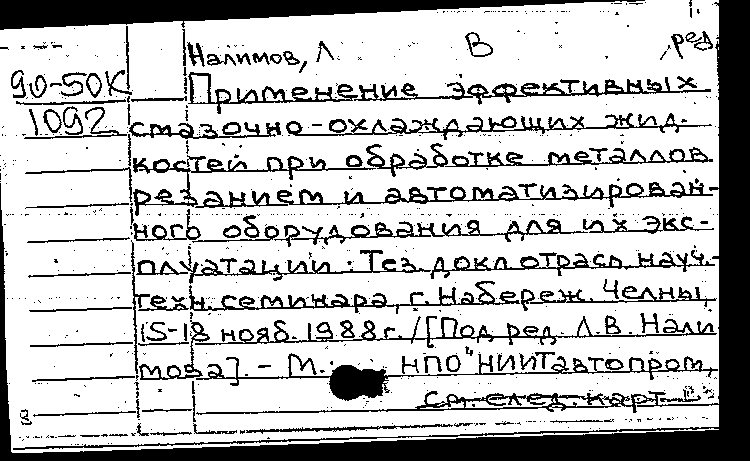 Налимов, Л. В., ред.
90-50К
1092
Применение эффективных
смазочно-охлаждающих жид-
костей при обработке металлов
резанием и автоматизирован-
ного оборудования для их экс-
плуатации: Тез. докл. отрасл. науч.-
техн. семинара, г. Набереж. Челны,
15-18 нояб. 1988 г. / [Под ред. Л.В. Нали
мова]. - М.: НПО "НИИТавтопром,
См. след. карт.